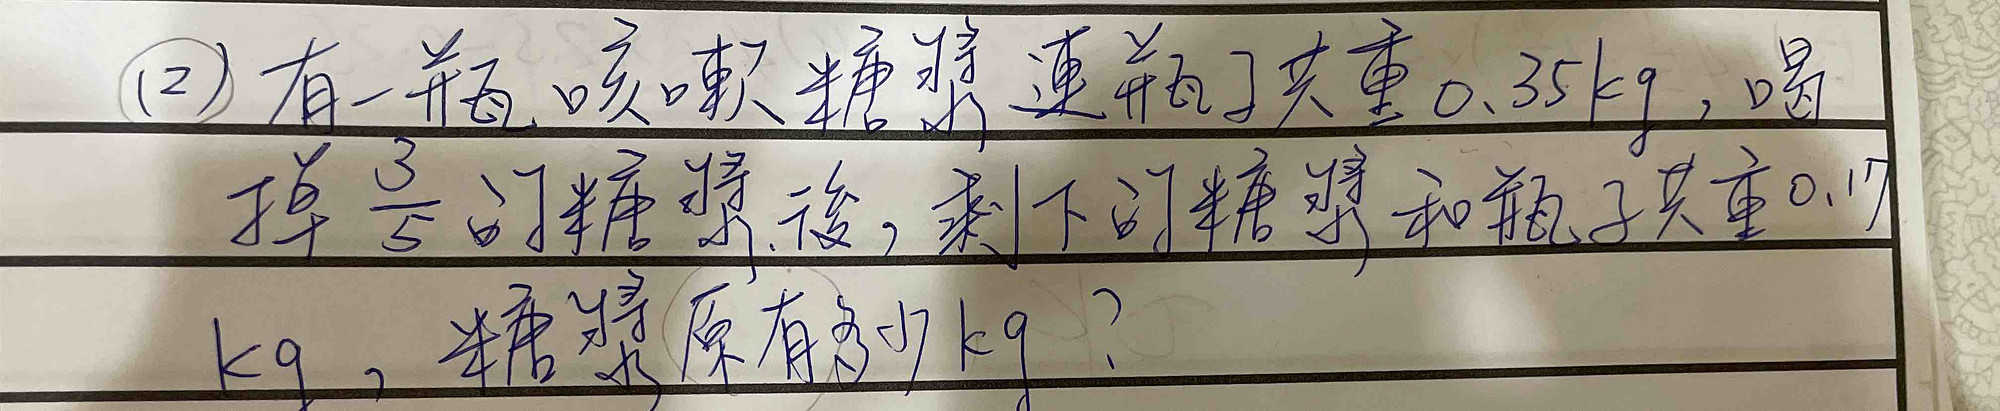 (2) 有一瓶咳嗽糖漿連瓶子共重0.35kg，喝
掉3/5的糖漿後，剩下的糖漿和瓶子共重0.17
kg，糖漿原有多少kg？